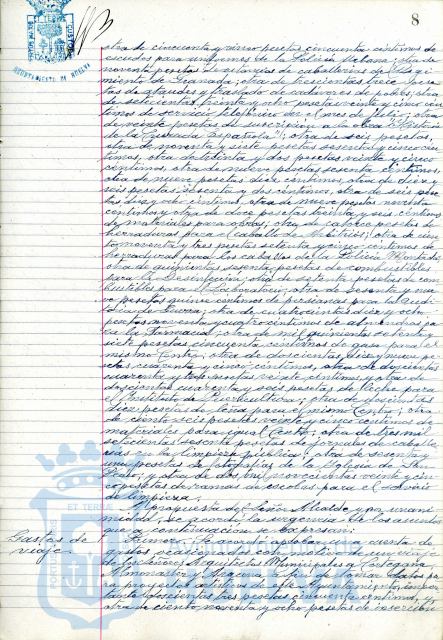 8
AYUNTAMIENTO DE HUELVA
otra de cincuenta y cinco pesetas cincuenta céntimos de
escudos para uniformes de la Policía Urbana; otra de
noventa pesetas de estancias de caballerías del Regi-
miento de Granada; otra de trescientas trein-
tas de ataudes y traslado de cadáveres de pobres; otra
de setecientas treinta y ocho pesetas veinte y cinco cén-
timos de servicio telefónico del mes de Julio; otra
de veinte pesetas de suscrición a la obra "Historia
de la Cruzada Española"; otra de seis pesetas,
otra de noventa y siete pesetas sesenta y cinco cén-
timos, otra de setenta y dos pesetas veinte y cinco
céntimos, otra de nueve pesetas sesenta céntimos,
otra de nueve pesetas diez céntimos, otra de diez y
seis pesetas sesenta y dos céntimos, otra de seis pese-
tas diez y ocho céntimos, otra de nueve pesetas noventa
céntimos y otra de doce pesetas treinta y seis céntimos
de materiales para obras; otra de catorce pesetas de
herraduras para el caballo de Arbitrios; otra de cien-
to noventa y tres pesetas setenta y cinco céntimos de
herraduras para los caballos de la Policía Montada;
otra de quinientas sesenta pesetas de combustibles
para la Desinfección; otra de setenta pesetas de com-
bustibles para el Laboratorio; otra de sesenta y nue-
ve pesetas quince céntimos de persianas para la Audi-
toría de Guerra; otra de cuatrocientas diez y ocho
pesetas noventa y cuatro céntimos de alimentos pa-
ra la Farmacia; otra de mil quinientas setenta y
siete pesetas cincuenta céntimos de gasa para el
mismo Centro; otra de doscientas diez y nueve pe-
setas cuarenta y cinco céntimos, otra de doscientas
cuarenta y tres pesetas veinte céntimos y otra de
doscientas cuarenta y seis pesetas de leche para
el Instituto de Puericultura; otra de doscientas
diez pesetas de leña para el mismo Centro; otra
de ciento seis pesetas veinte y cinco céntimos de
materiales para igual Centro; otra de tres mil
setecientas sesenta pesetas de jornales de caballe-
rías en la limpieza pública; otra de sesenta y
una pesetas de fotografías de la Iglesia de San
Pedro, y otra de dos mil novecientas veinte y cin-
co pesetas de ramas de escobas para el servicio
de limpieza.
A propuesta del Señor Alcalde y por unani-
midad, se acordó la urgencia de los asuntos
que a continuación se expresan:
Gastos de viaje. Primero. Se acordó aprobar una cuenta de
gastos ocasionados con motivo de un viaje
de los Señores Arquitectos Municipales a Cortegana
Almonaster y Aracena a fin de tomar datos pa-
ra proyectos artísticos de este Ayuntamiento, impor-
tante doscientas tres pesetas cincuenta céntimos, y
otra de ciento noventa y ocho pesetas de inscripción